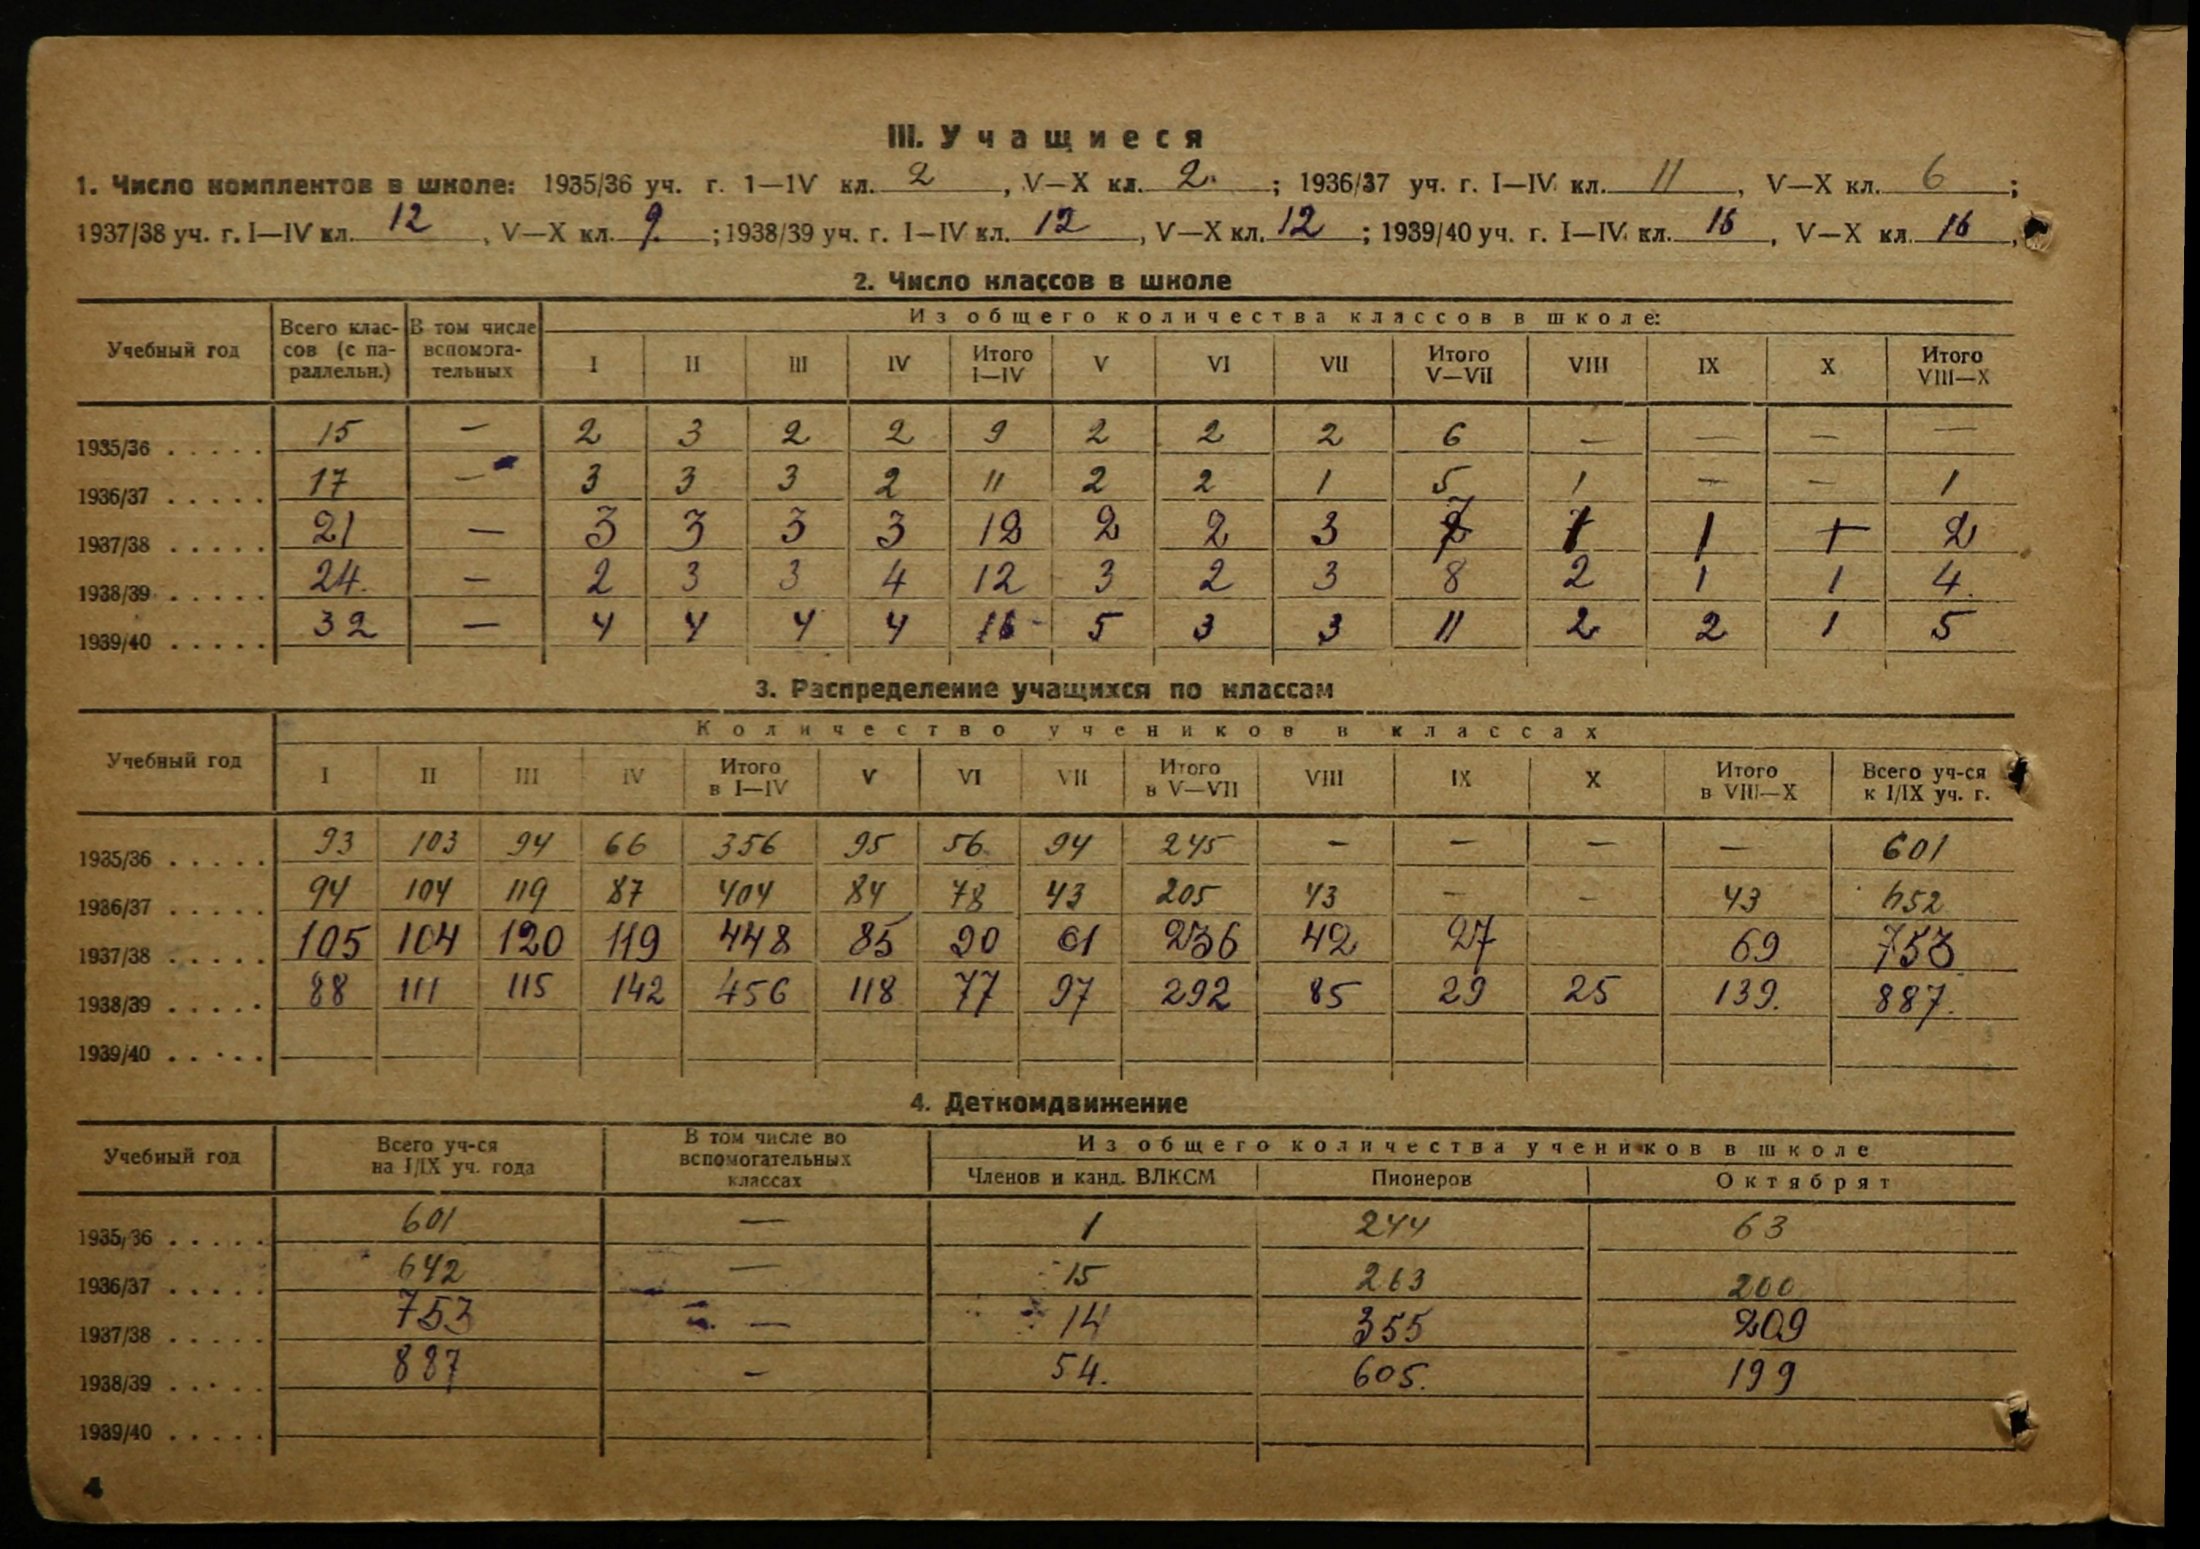 III. Учащиеся
1. Число комплектов в школе: 1935/36 уч. г. 1—IV кл. 2, V—X кл. 2; 1936/37 уч. г. I—IV кл. 11, V—X кл. 6;
1937/38 уч. г. I—IV кл. 12, V—X кл. 9; 1938/39 уч. г. I—IV кл. 12, V—X кл. 12; 1939/40 уч. г. I—IV кл. 16, V—X кл. 16,
2. Число классов в школе
Учебный год | Всего классов (с параллельн.) | В том числе вспомогательных | Из общего количества классов в школе:
I | II | III | IV | Итого I—IV | V | VI | VII | Итого V—VII | VIII | IX | X | Итого VIII—X
1935/36 . . . . . 15 — 2 3 2 2 9 2 2 2 6 — — — —
1936/37 . . . . . 17 — 3 3 3 2 11 2 2 1 5 1 — — 1
1937/38 . . . . . 21 — 3 3 3 3 12 2 2 3 7 1 1 — 2
1938/39 . . . . . 24. — 2 3 3 4 12 3 2 3 8 2 1 1 4
1939/40 . . . . . 32 — 4 4 4 4 16 5 3 3 11 2 2 1 5
3. Распределение учащихся по классам
Учебный год | Количество учеников в классах
I | II | III | IV | Итого в I—IV | V | VI | VII | Итого в V—VII | VIII | IX | X | Итого в VIII—X | Всего уч-ся к I/IX уч. г.
1935/36 . . . . . 93 103 94 66 356 95 56 94 245 — — — — 601
1936/37 . . . . . 94 104 119 87 404 84 78 43 205 43 — — 43 652
1937/38 . . . . . 105 104 120 119 448 85 90 61 236 42 27 69 753
1938/39 . . . . . 88 111 115 142 456 118 77 97 292 85 29 25 139. 887.
1939/40 . . . . .
4. Деткомдвижение
Учебный год | Всего уч-ся на I/IX уч. года | В том числе во вспомогательных классах | Из общего количества учеников в школе
Членов и канд. ВЛКСМ | Пионеров | Октябрят
1935/36 . . . . . 601 — 1 244 63
1936/37 . . . . . 642 — 15 263 200
1937/38 . . . . . 753 — 14 355 209
1938/39 . . . . . 887 — 54. 605. 199
1939/40 . . . . .
4